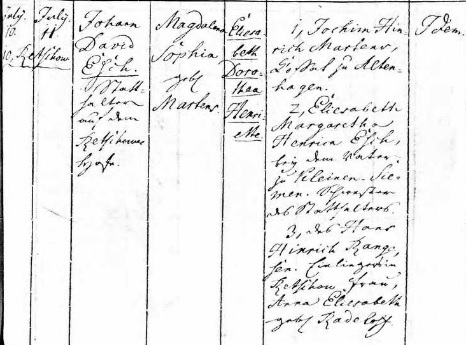 July. 10.
July. 11.
10, Retschow
Johann
David
Esch.
Statt-
halter
auf dem
Retschower
Hofe.
Magdalena
Sophia
geb.
Martens.
Elisa-
beth
Doro-
thea
Henri-
ette.
1, Jochim Hin-
rich Martens,
zu Alten-
hagen.
2, Elisabeth
Margaretha
Henrica Esch,
bey dem Vater
zu kleinen Sie-
men. Schwester
des Statthalters.
3, des Hans
Hinrich
Einlieger in
Retschow Frau,
Anna Elisabeth
geb. Radeloff
Idem.